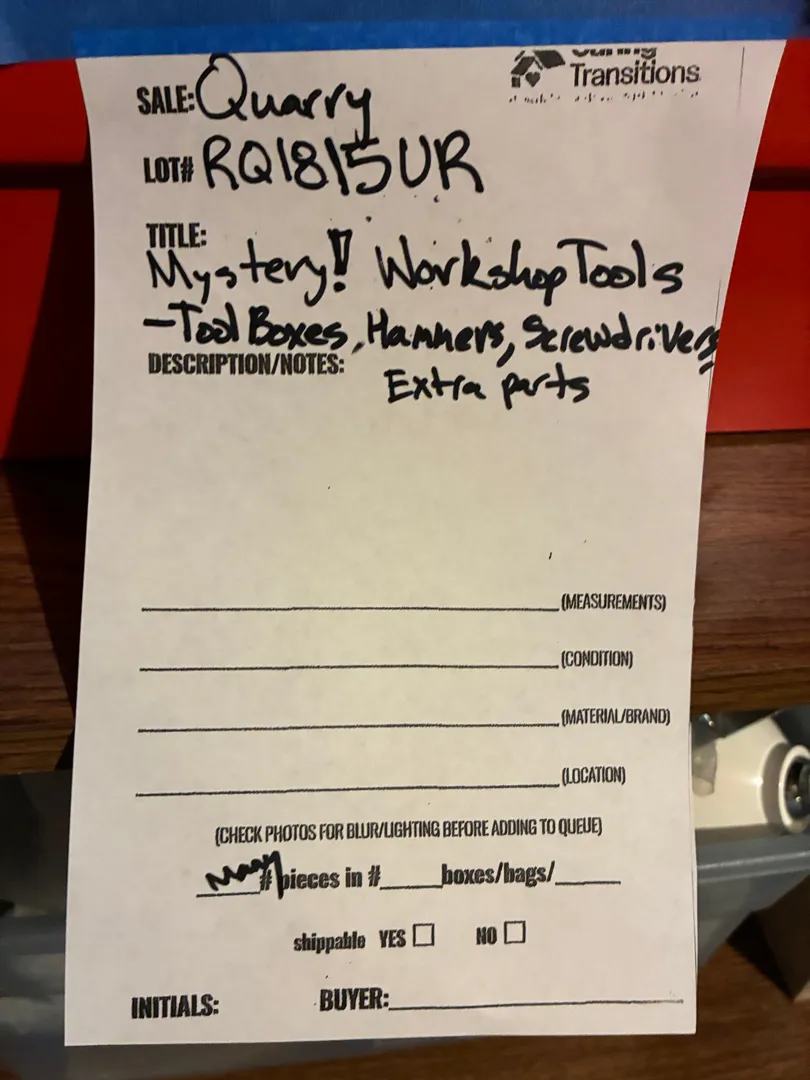 Transitions
SALE: Quarry
LOT# RQ1815UR
TITLE:
Mystery! Workshop Tools
-Tool Boxes, Hammers, Screwdrivers
DESCRIPTION/NOTES:
Extra parts
(MEASUREMENTS)
(CONDITION)
(MATERIAL/BRAND)
(LOCATION)
(CHECK PHOTOS FOR BLUR/LIGHTING BEFORE ADDING TO QUEUE)
Many # pieces in #_____boxes/bags/_____
shippable YES NO
INITIALS: BUYER: